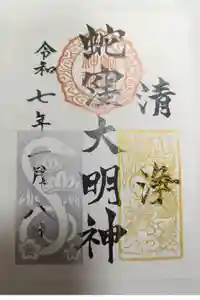 清浄
蛇窪大明神
令和七年一月八日